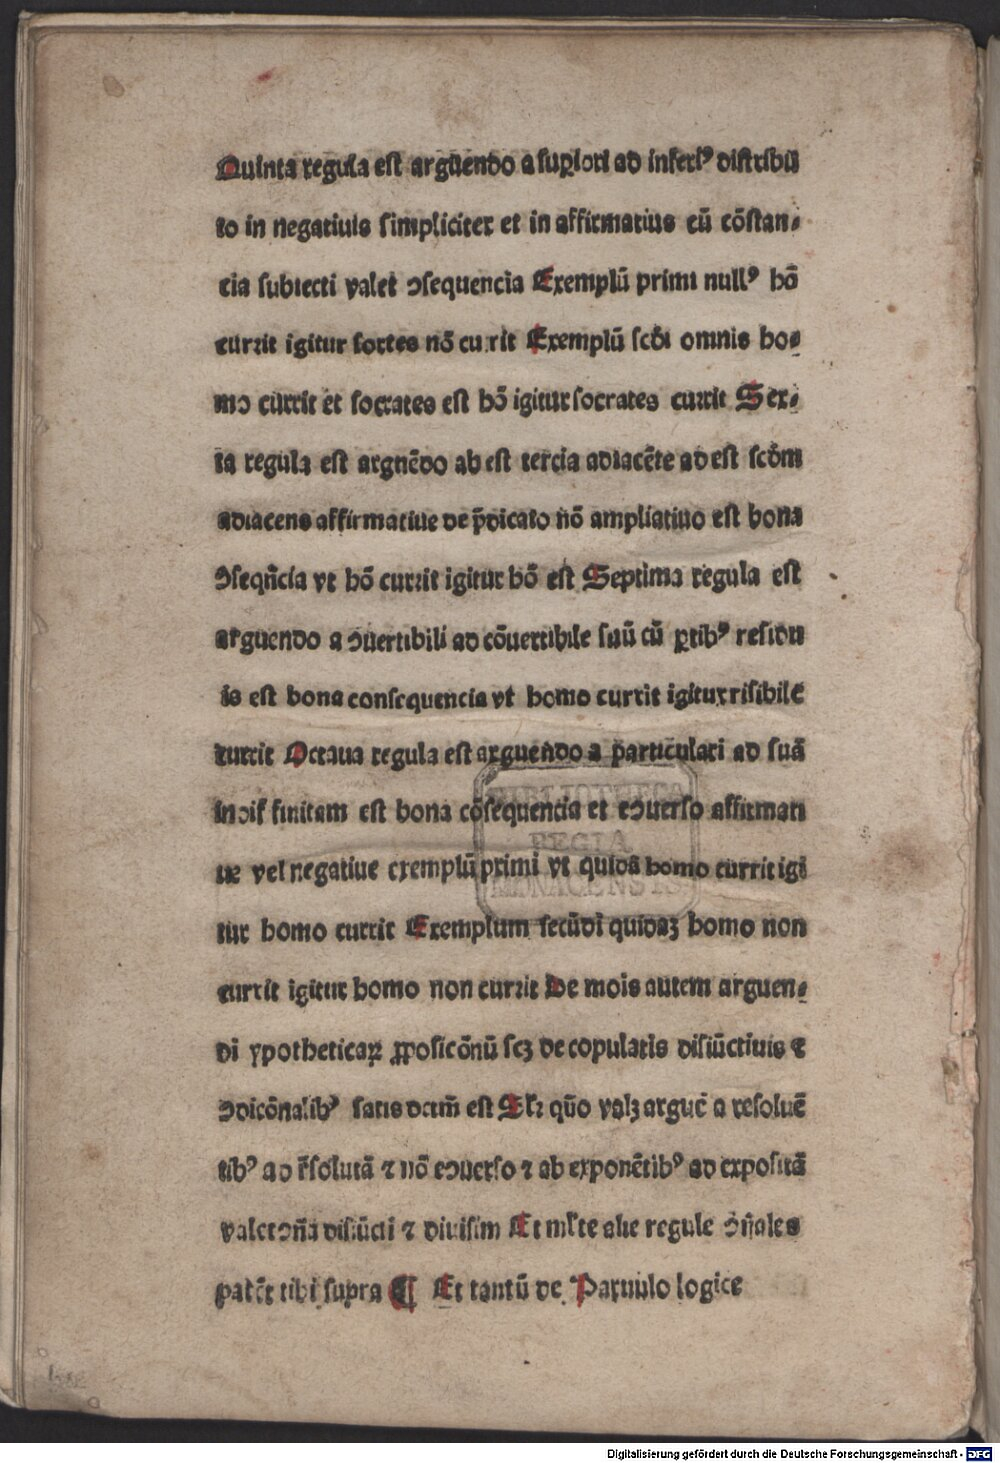 Quinta regula est arguendo a suꝑiori ad inferiꝰ distribu
to in negatiuis simpliciter et in affirmatius cū cōstan⸗
cia subiecti valet ↄsequencia Exemplū primi nullꝰ hō
currit igitur sortes nō currit Exemplū scdi omnis ho⸗
mo currit et socrates est hō igitur socrates currit Sex⸗
ta regula est arguēdo ab est tercia adiacēte ad est scdm
adiacens affirmatiue de p̄dicato nō ampliatiuo est bona
ↄseqn̄cia vt hō currit igitur hō est Septima regula est
arguendo a ↄuertibili ad cōuertibile suū cū ꝑtibꝰ residu
is est bona consequencia vt homo currit igitur risibile
currit Octaua regula est arguendo a particulari ad suā
indiffinitam est bona cōsequencia et eↄuerso affirmati
ue vel negatiue exemplū primi vt quidā homo currit igi
tur homo currit Exemplum secūdi quidaʒ homo non
currit igitur homo non currit De mois autem arguen⸗
di ypotheticaꝝ ꝓposicōnū scʒ de copulatis disiūctiuis ⁊
ↄdicōnalibꝰ satis dctm̄ est qūo valʒ arguē a resoluē
tibꝰ ad r̄solutā ⁊ nō eↄuerso ⁊ ab exponētibꝰ ad expositā
valet ↄn̄a disiūcti ⁊ diuisim Et ml̄te alie regule ↄn̄ales
patēt tibi supra ¶ Et tantū de Paruulo logice
BIBLIOTHECA
REGIA
MONACENSIS
Digitalisierung gefördert durch die Deutsche Forschungsgemeinschaft - DFG